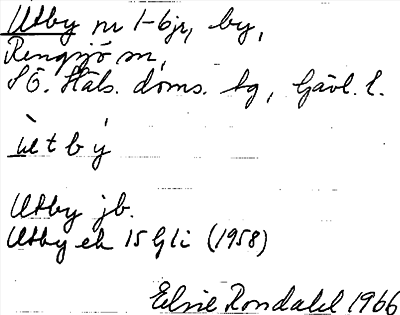 Utby nr 1-6 jr, by,
Rengsjö sn,
SÖ. Häls. doms. tg, Gävl. l.
ùtbý
Utby jb.
Utby ek 15 G li (1958)
Elsie Rondahl 1966